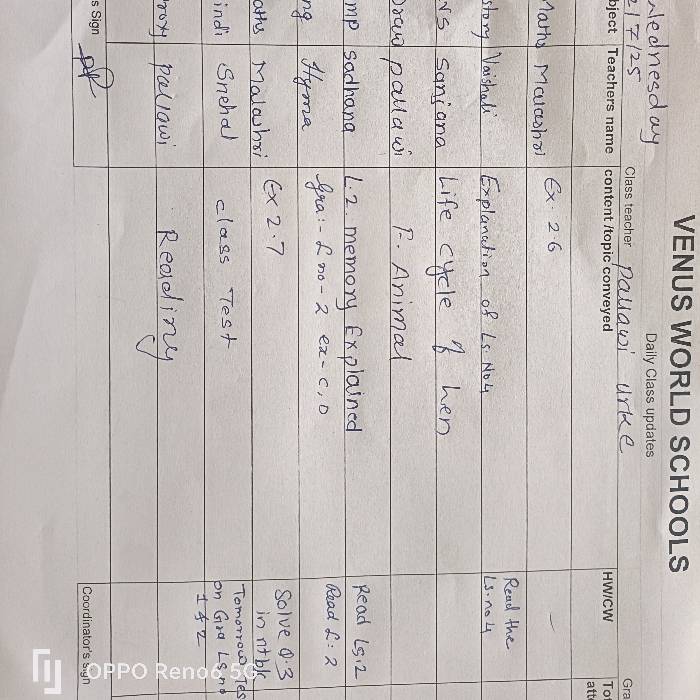 VENUS WORLD SCHOOLS
Daily Class updates
Wednesday
2/7/25
Class teacher Pallawi Urke
Gra
bject Teachers name content /topic conveyed HW/CW
Maths Malashri Ex. 2.6 -
story Vaishali Explanation of Ls. No 4 Read the Ls. no 4
VS Sanjana Life cycle of hen
Draw pallawi P. Animal
mp sadhana L.2. memory Explained Read Ls, 2
ng Hyma Gra:- L no - 2 ex - C, D Read L: 2
aths Malashri Ex 2.7 Solve Q.3 in ntbk
indi Snehal class Test Tomorrow Tes on Gra Ls. no 1 & 2
pallawi Reading
s Sign Coordinator's Sign
OPPO Reno6 5G